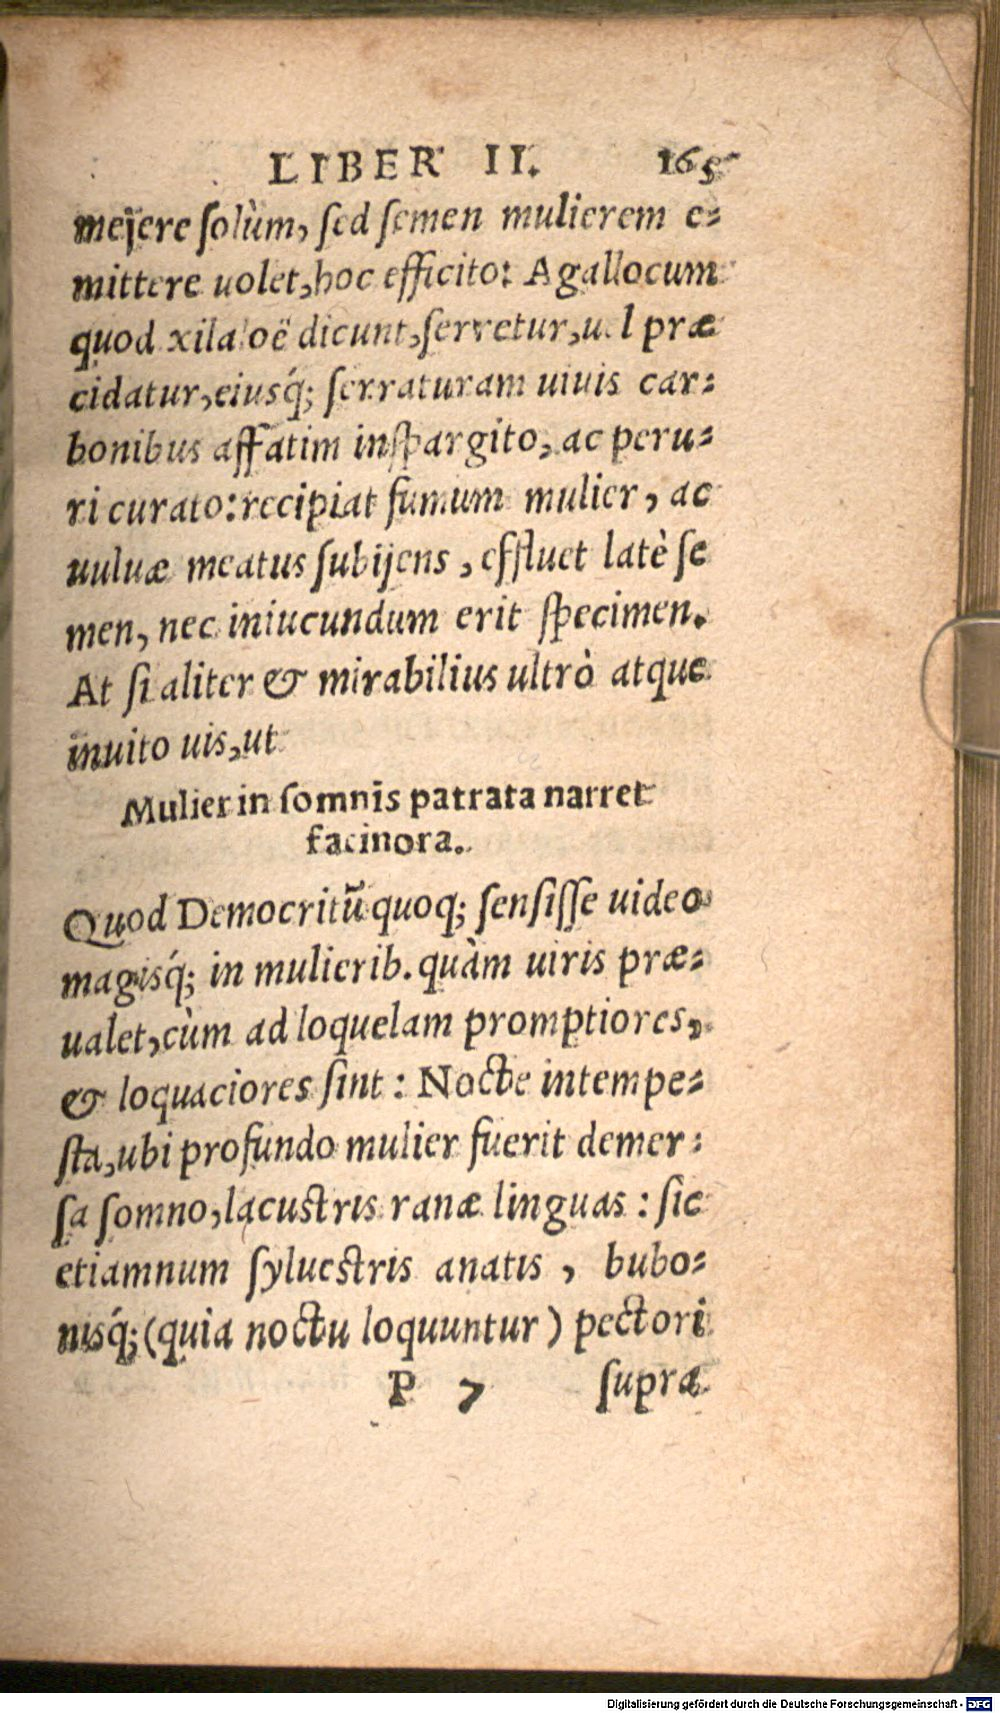 LIBER II. 165
meijere ſolùm, ſed ſemen mulierem e-
mittere uolet, hoc efficito: Agallocum
quod xilaloë dicunt, ſerretur, uel præ
cidatur, eiusq́; ſerraturam uiuis car-
bonibus affatim inſpargito, ac peru-
ri curato: recipiat fumum mulier, ac
uuluæ meatus ſubijens, effluet latè ſe
men, nec iniucundum erit ſpecimen.
At ſi aliter & mirabilius ultrò atque
inuito uis, ut
Mulier in ſomnis patrata narret
facinora.
Quod Democritũ quoq; ſenſiſſe uideo
magisq́; in mulierib. quàm uiris præ-
ualet, cùm ad loquelam promptiores,
& loquaciores ſint: Nocte intempe-
ſta, ubi profundo mulier fuerit demer-
ſa ſomno, lacuſtris ranæ linguas: ſic
etiamnum ſylueſtris anatis, bubo-
nisq́; (quia noctu loquuntur) pectori
P 7 ſupræ
Digitalisierung gefördert durch die Deutsche Forschungsgemeinschaft - DFG